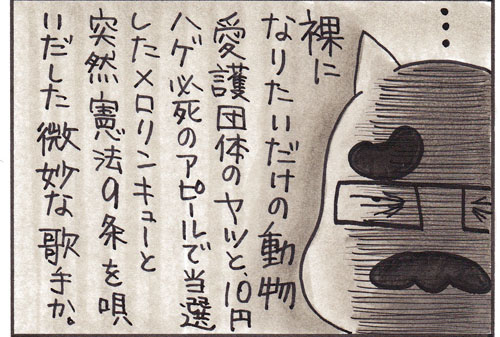 …
裸に
なりたいだけの動物
愛護団体のヤツと、10円
ハゲ必死のアピールで当選
したメロリンキューと
突然憲法9条を唄
いだした微妙な歌手か。